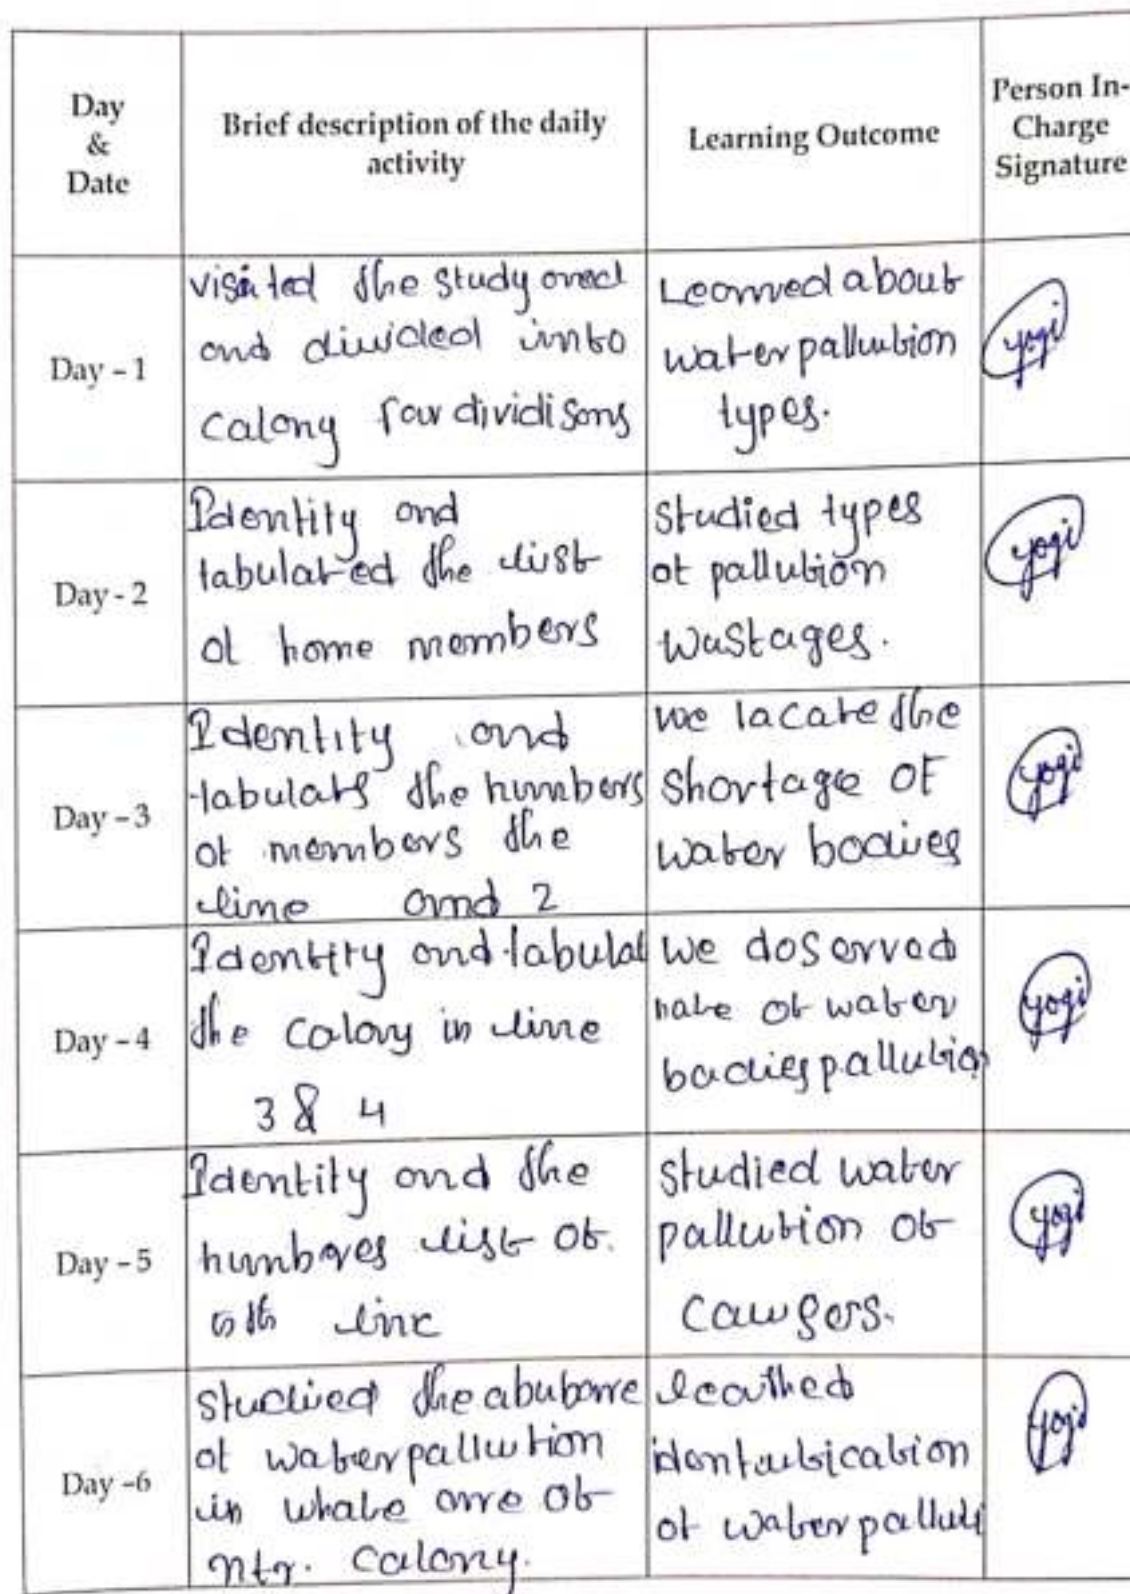 Day
&
Date
Brief description of the daily
activity
Learning Outcome
Person In-
Charge
Signature
Day - 1
visited the study
and divided into
Calony four dividisons
Learned about
water pallution
types.
yogi
Day - 2
Identity and
tabulated the list
of home members
studied types
of pallution
wastages.
yogi
Day - 3
Identity and
tabulats the numbers
of members the
line and 2
we lacate the
shortage of
water bodies
yogi
Day - 4
Identity and tabulat
the Calony in line
3 & 4
we doserved
of water
bodies pallution
yogi
Day - 5
Identity and the
list of
5th line
studied water
pallution of
yogi
Day -6
studied the
of water pallution
in whale of
Ntr. Calony.
of water palluti
yogi